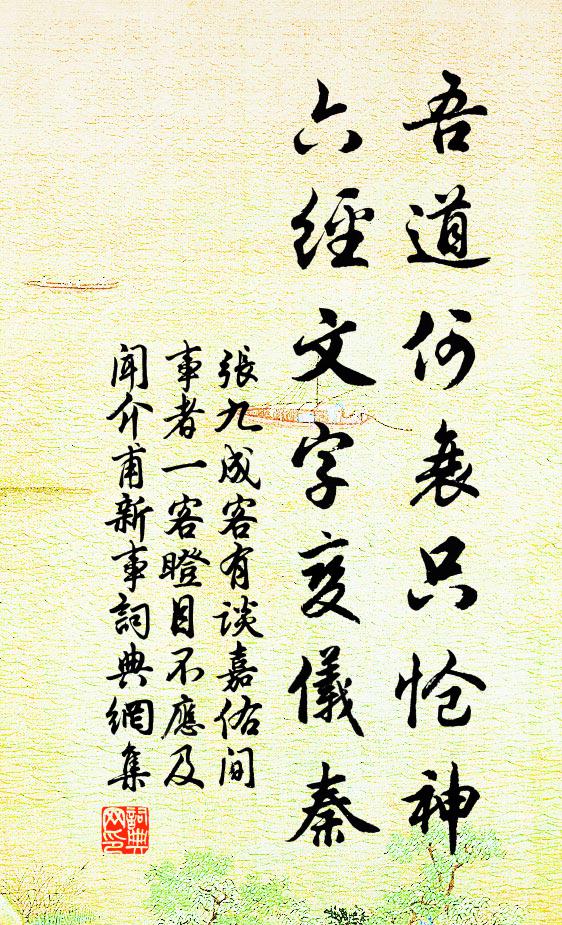 吾道何衰只怆神
六經文字变儀秦
張九成客有談嘉佑间
事者一客瞪目不應及
闻介甫新事詞典網集
詞典
网印